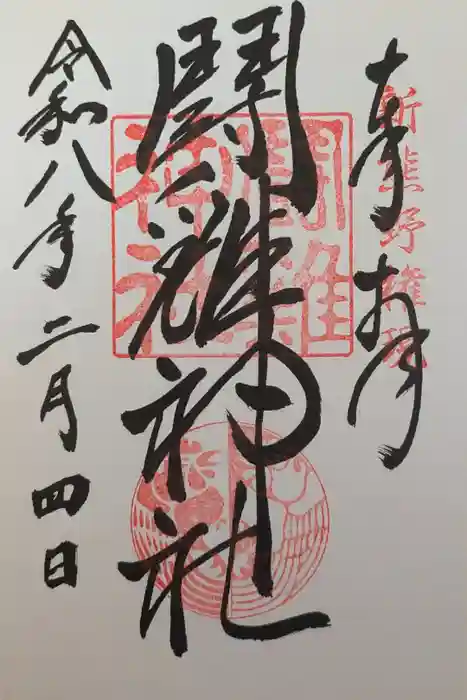 奉拝
新熊野権現
闘雞神社
闘雞神社
令和八年二月四日